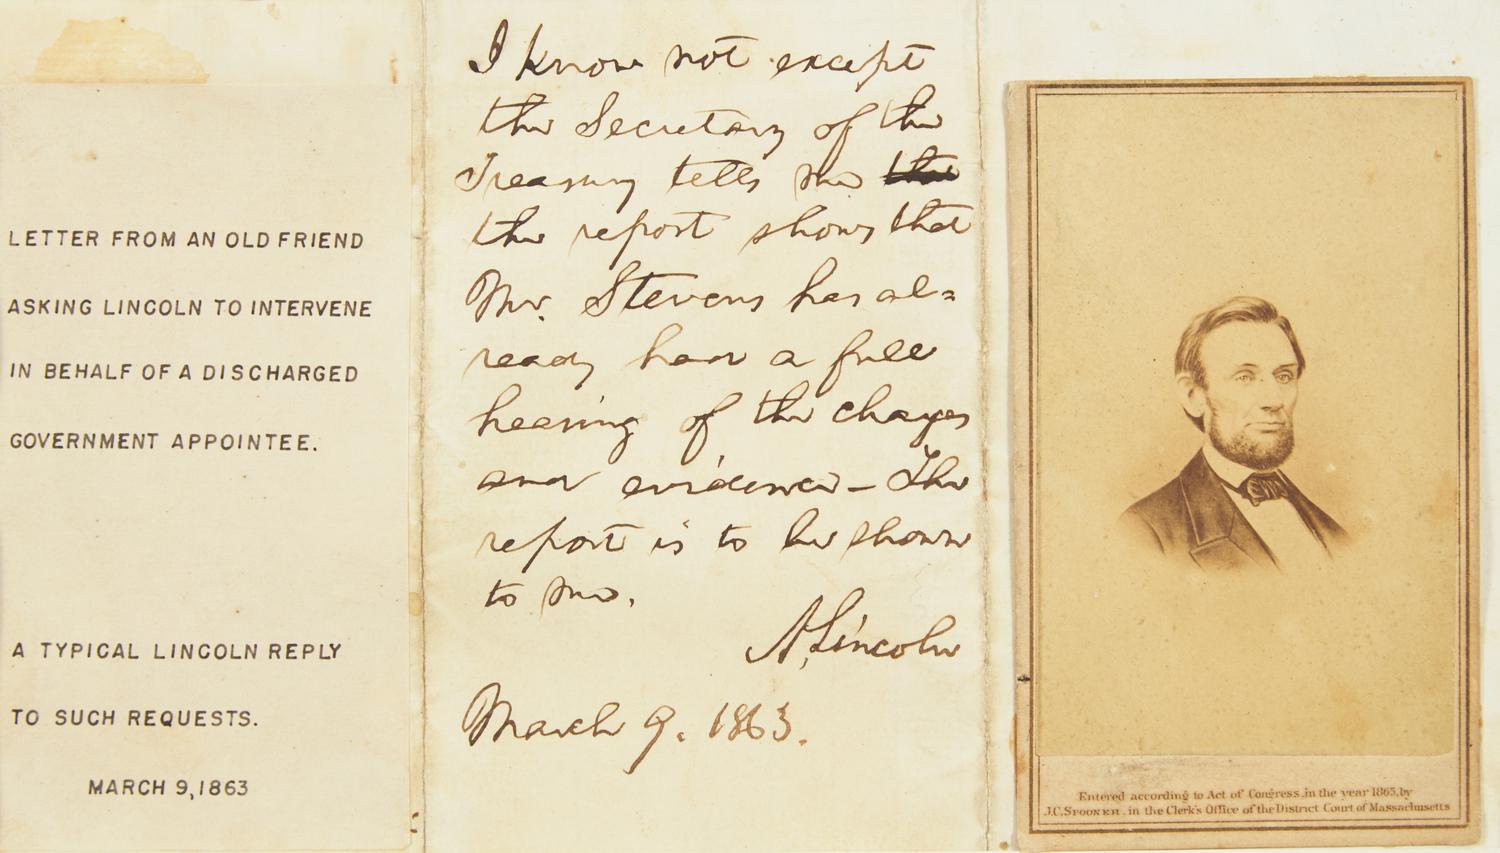 LETTER FROM AN OLD FRIEND
ASKING LINCOLN TO INTERVENE
IN BEHALF OF A DISCHARGED
GOVERNMENT APPOINTEE.
A TYPICAL LINCOLN REPLY
TO SUCH REQUESTS.
MARCH 9, 1863
I know not except
the Secretary of the
Treasury tells me the
the report shows that
Mr. Stevens has al=
ready had a full
hearing of the charges
and evidence — The
report is to be shown
to me.
A. Lincoln
March 9. 1863.
Entered according to Act of Congress, in the year 1865, by
J.C. SPOONER, in the Clerk's Office of the District Court of Massachusetts